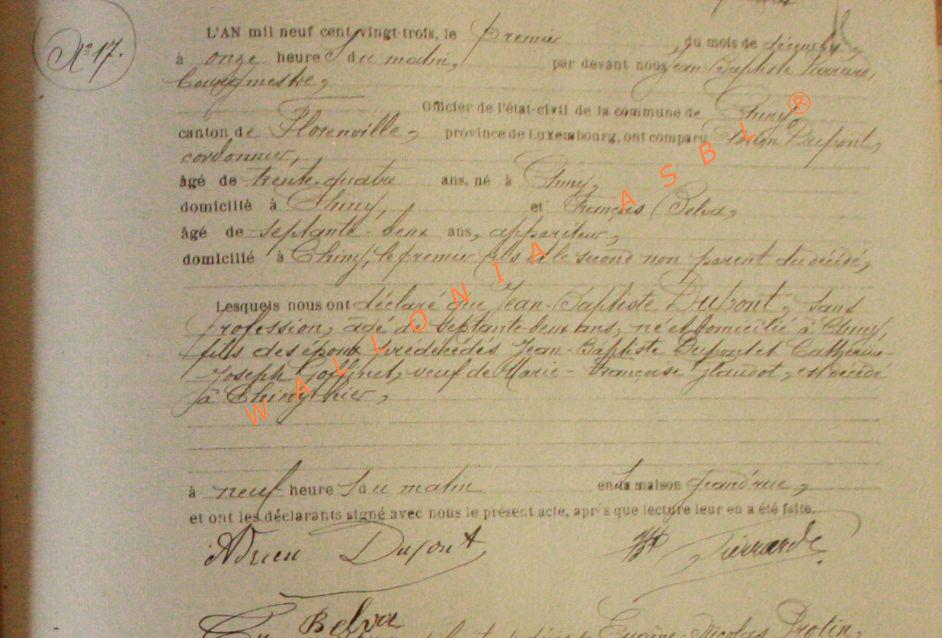 N° 17.
L'AN mil neuf cent vingt-trois, le premier du mois de décembre,
à onze heures du matin, par devant nous Jean-Baptiste Pierrard,
bourgmestre,
Officier de l'état-civil de la commune de Chiny,
canton de Florenville, province de Luxembourg, ont comparu Dupont,
cordonnier,
âgé de trente-quatre ans, né à Chiny,
domicilié à Chiny, et François Belva,
âgé de septante-deux ans, appariteur,
domicilié à Chiny, le premier fils et le second non parent du décédé,
Lesquels nous ont déclaré que Jean-Baptiste Dupont, sans
profession, âgé de septante-deux ans, né et domicilié à Chiny,
fils des époux prédécédés Jean-Baptiste Dupont et Catherine-
Joseph Goffinet, veuf de Marie-Françoise Jlaudot, est décédé
à Chiny hier,
à neuf heures du matin en sa maison Grand'rue,
et ont les déclarants signé avec nous le présent acte, après que lecture leur en a été faite.
Adrien Dupont Pierrard
Belva
Eugène-Nicolas Protin,
WALLONIA ASBL ®